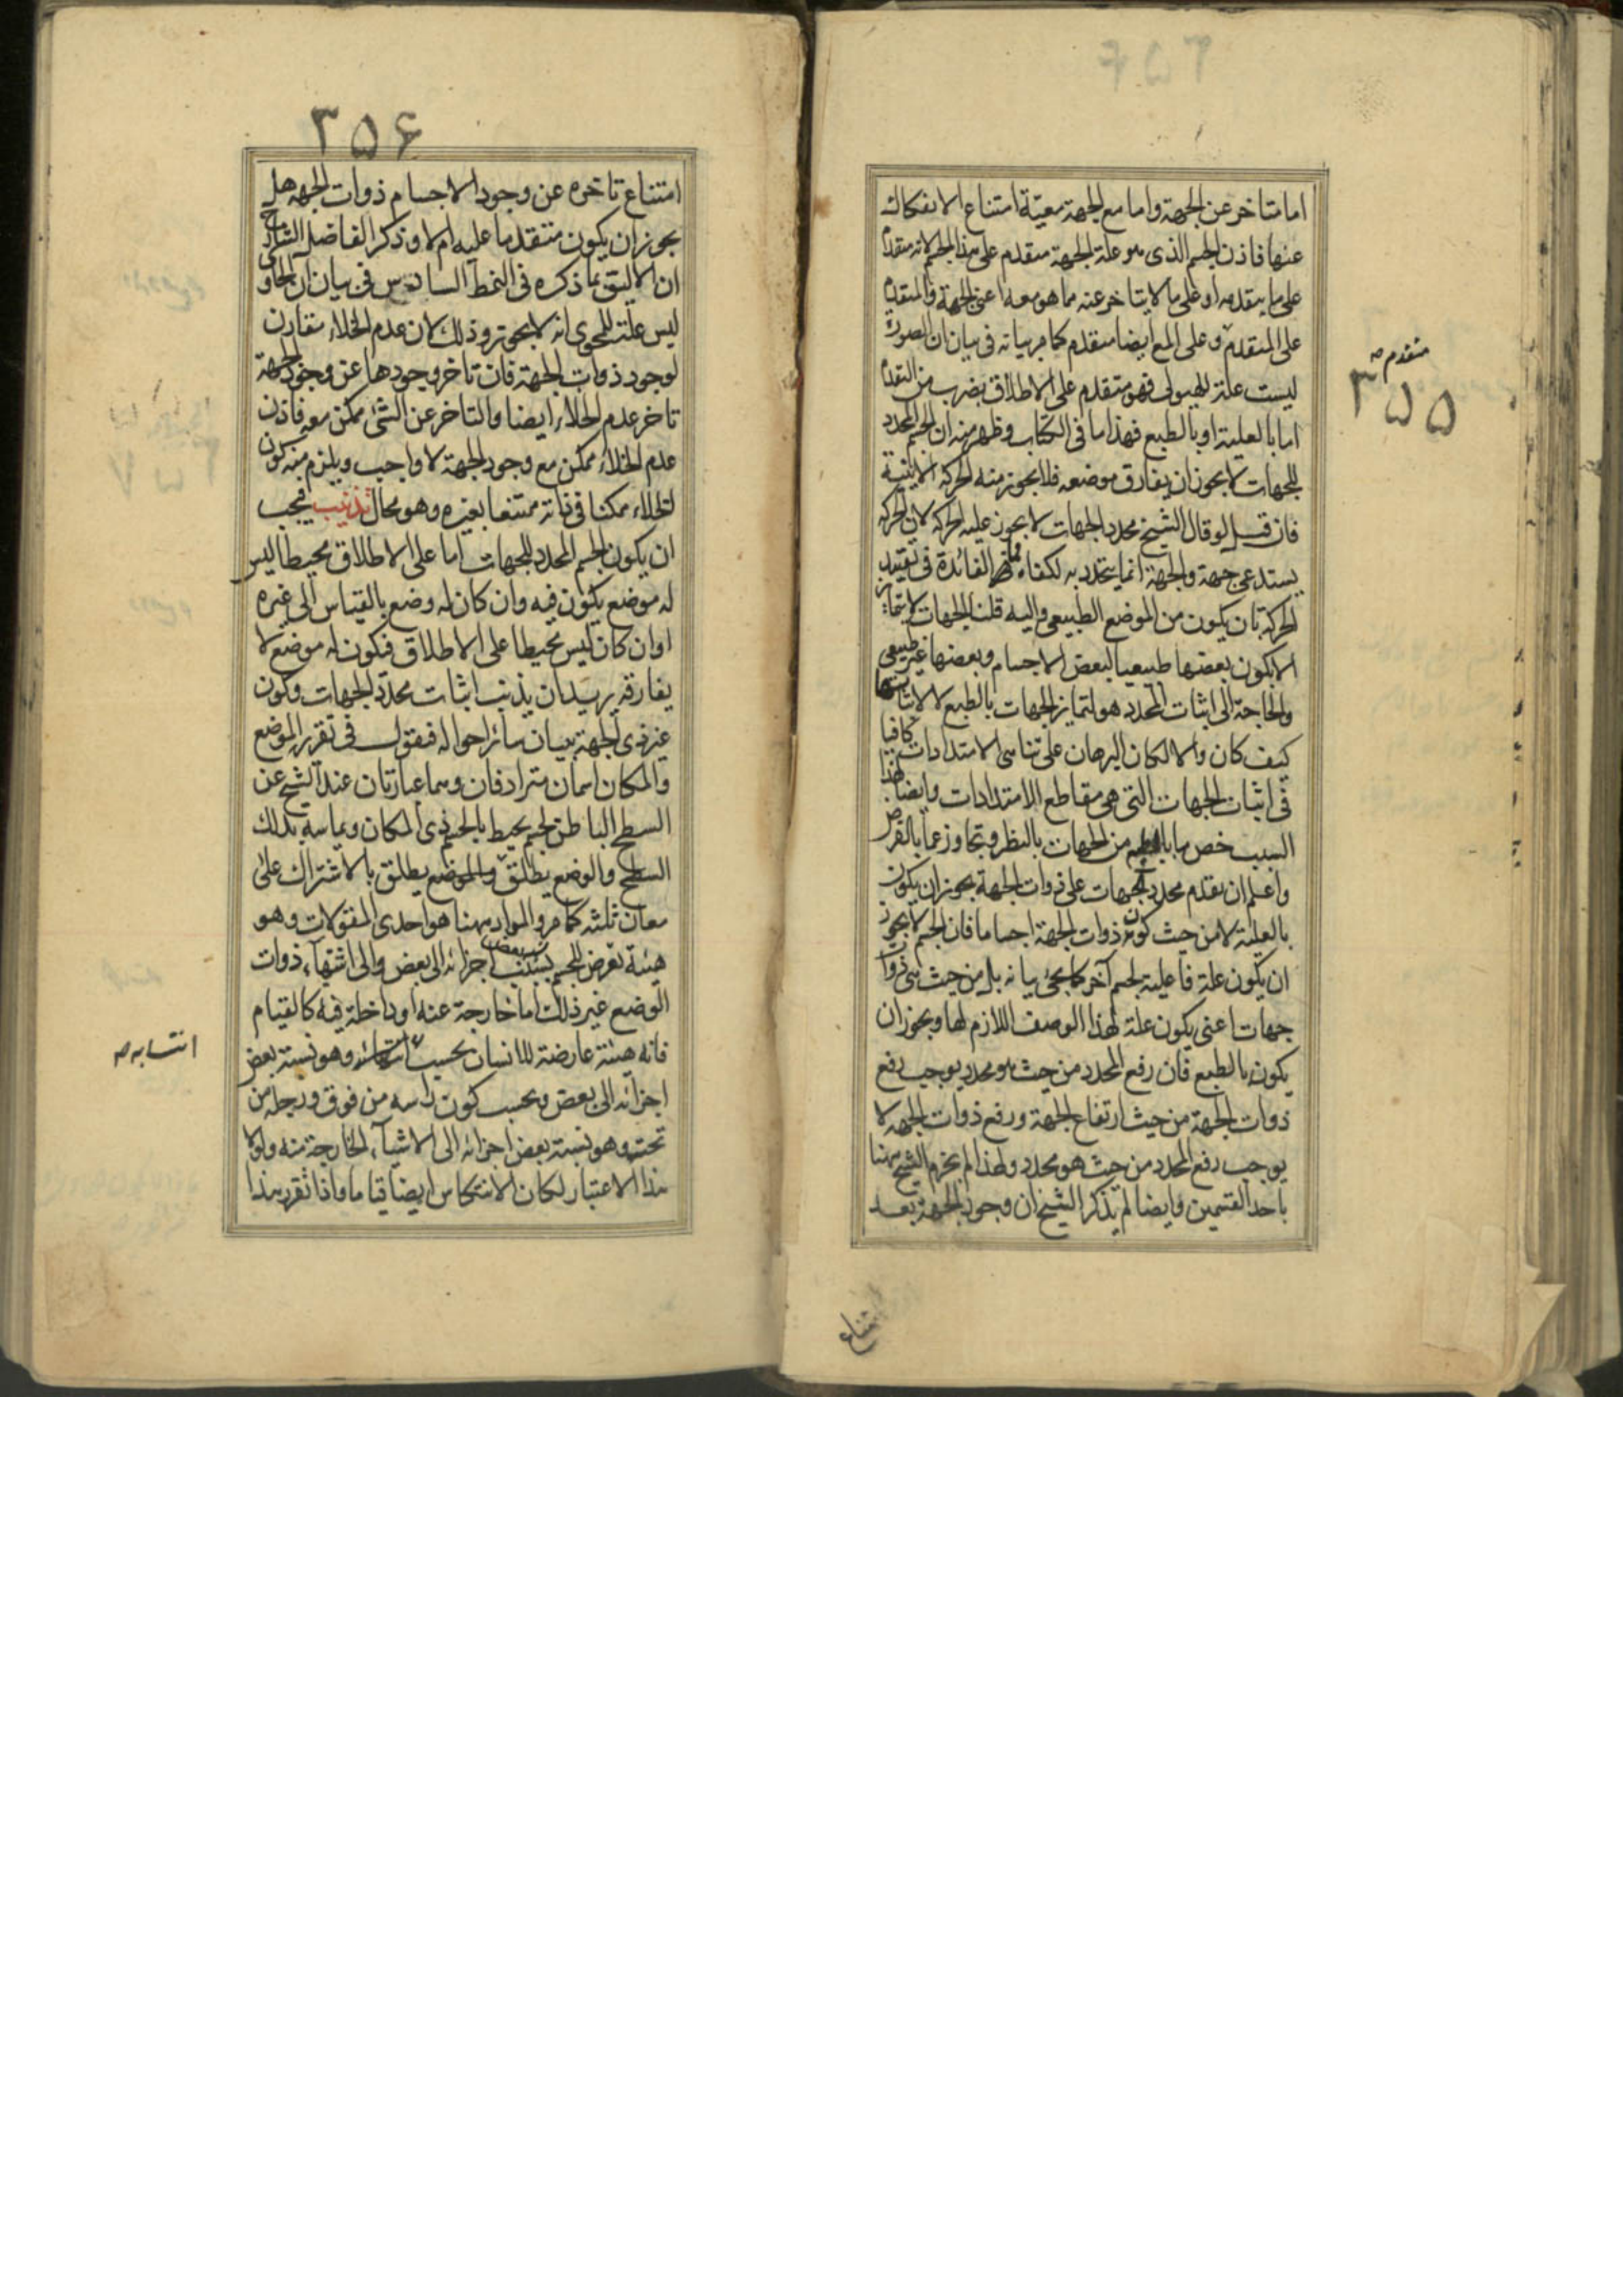 اما متاخر عن الجهة واما مع الجهة معية امتناع الانفكاك
عنها فاذن الجسم الذى هو علة الجهة متقدم على هذا الجسم لانه متقدم
على ما يتقدمه او على ما لا يتاخر عنه مما هو معه اعنى الجهة والمتقدم
على المتقدم وعلى المع ايضا متقدم كما مر بيانه فى بيان ان الصورة
متقدم صح
٣٥٥
ليست علة للهيولى فهو متقدم على الاطلاق بضرب من التقدم
اما بالعلية او بالطبع فهذا ما فى الكتاب وظهر منه ان الجسم المحدد
للجهات لا يجوز ان يفارق موضعه فلا يجوز منه الحركة الاينية
فان قيل لو قال الشيخ محدد الجهات لا يجوز عليه الحركة لان الحركة
يستدعى جهة والجهة انما يتحدد به لكفاه فما الفائدة فى تقييد
الحركة بان يكون من الموضع الطبيعى واليه قلنا الجهات لا يتمايز
الا بكون بعضها طبيعيا لبعض الاجسام وبعضها غير طبيعى
والحاجة الى اثبات المحدد هو لتمايز الجهات بالطبع لا لاثباتها
كيف كان والا لكان البرهان على تناهى الامتدادات كافيا
فى اثبات الجهات التى هى مقاطع الامتدادات وايضا لهذا
السبب خص ما بالطبع من الجهات بالنظر وتجاوز عما بالفرض
واعلم ان تقدم محدد الجهات على ذوات الجهة يجوز ان يكون
بالعلية لا من حيث كون ذوات الجهة اجساما فان الجسم لا يجوز
ان يكون علة فاعلية لجسم آخر كما يجئ بيانه بل من حيث هى ذوات
جهات اعنى يكون علة لهذا الوصف اللازم لها ويجوز ان
يكون بالطبع فان رفع المحدد من حيث هو محدد يوجب رفع
ذوات الجهة من حيث ارتفاع الجهة ورفع ذوات الجهة لا
يوجب رفع المحدد من حيث هو محدد ولهذا لم يجزم الشيخ ههنا
باحد القسمين وايضا لم يذكر الشيخ ان وجود الجهة بعد
امتناع
٣٥۶
امتناع تاخره عن وجود الاجسام ذوات الجهة هل
يجوز ان يكون متقدما عليه ام لا وذكر الفاضل الشارح
ان الاليق بما ذكره فى النمط السادس فى بيان ان الحاوى
ليس علة للمحوى انه لا يجوز وذلك لان عدم الخلاء مقارن
لوجود ذوات الجهة فان تاخر وجودها عن وجود الجهة
تاخر عدم الخلاء ايضا والتاخر عن الشئ ممكن معه فاذن
عدم الخلاء ممكن مع وجود الجهة لا واجب ويلزم منه كون
الخلاء ممكنا فى ذاته ممتنعا بغيره وهو محال تذنيب فيجب
ان يكون الجسم المحدد للجهات اما على الاطلاق محيطا ليس
له موضع يكون فيه وان كان له وضع بالقياس الى غيره
او ان كان ليس محيطا على الاطلاق فيكون له موضع لا
يفارقه يريد ان يذنب اثبات محدد الجهات وكون
غير ذى الجهة ببيان سائر احواله فنقول فى تقرير الموضع
والمكان اسمان مترادفان وهما عبارتان عند الشيخ عن
السطح الباطن لجسم يحيط بالجسم ذى المكان ويماسه بذلك
السطح والوضع يطلق والموضع يطلق بالاشتراك على
معان ثلثه كما مر والمراد ههنا هو احدى المقولات وهو
هيئة تعرض للجسم بسبب نسبة بعض اجزائه الى بعض والى اشياء ذوات
الوضع غير ذلك اما خارجة عنه او داخلة فيه كالقيام
فانه هيئة عارضة للانسان بحسب انتسابه وهو نسبة بعض
انتسابه صح
اجزائه الى بعض وبحسب كون راسه من فوق ورجله من
تحت وهو نسبة بعض اجزائه الى الاشياء الخارجة منه ولولا
هذا الاعتبار لكان الانتكاس ايضا قياما واذا تقرر هذا